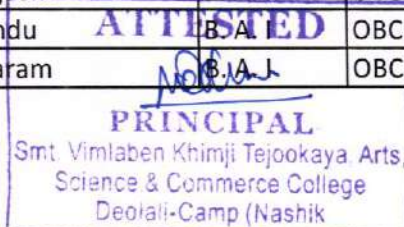 ndu B. A. I OBC
ATTESTED
aram B. A. I OBC
PRINCIPAL
Smt. Vimlaben Khimji Tejookaya Arts,
Science & Commerce College
Deolali-Camp (Nashik